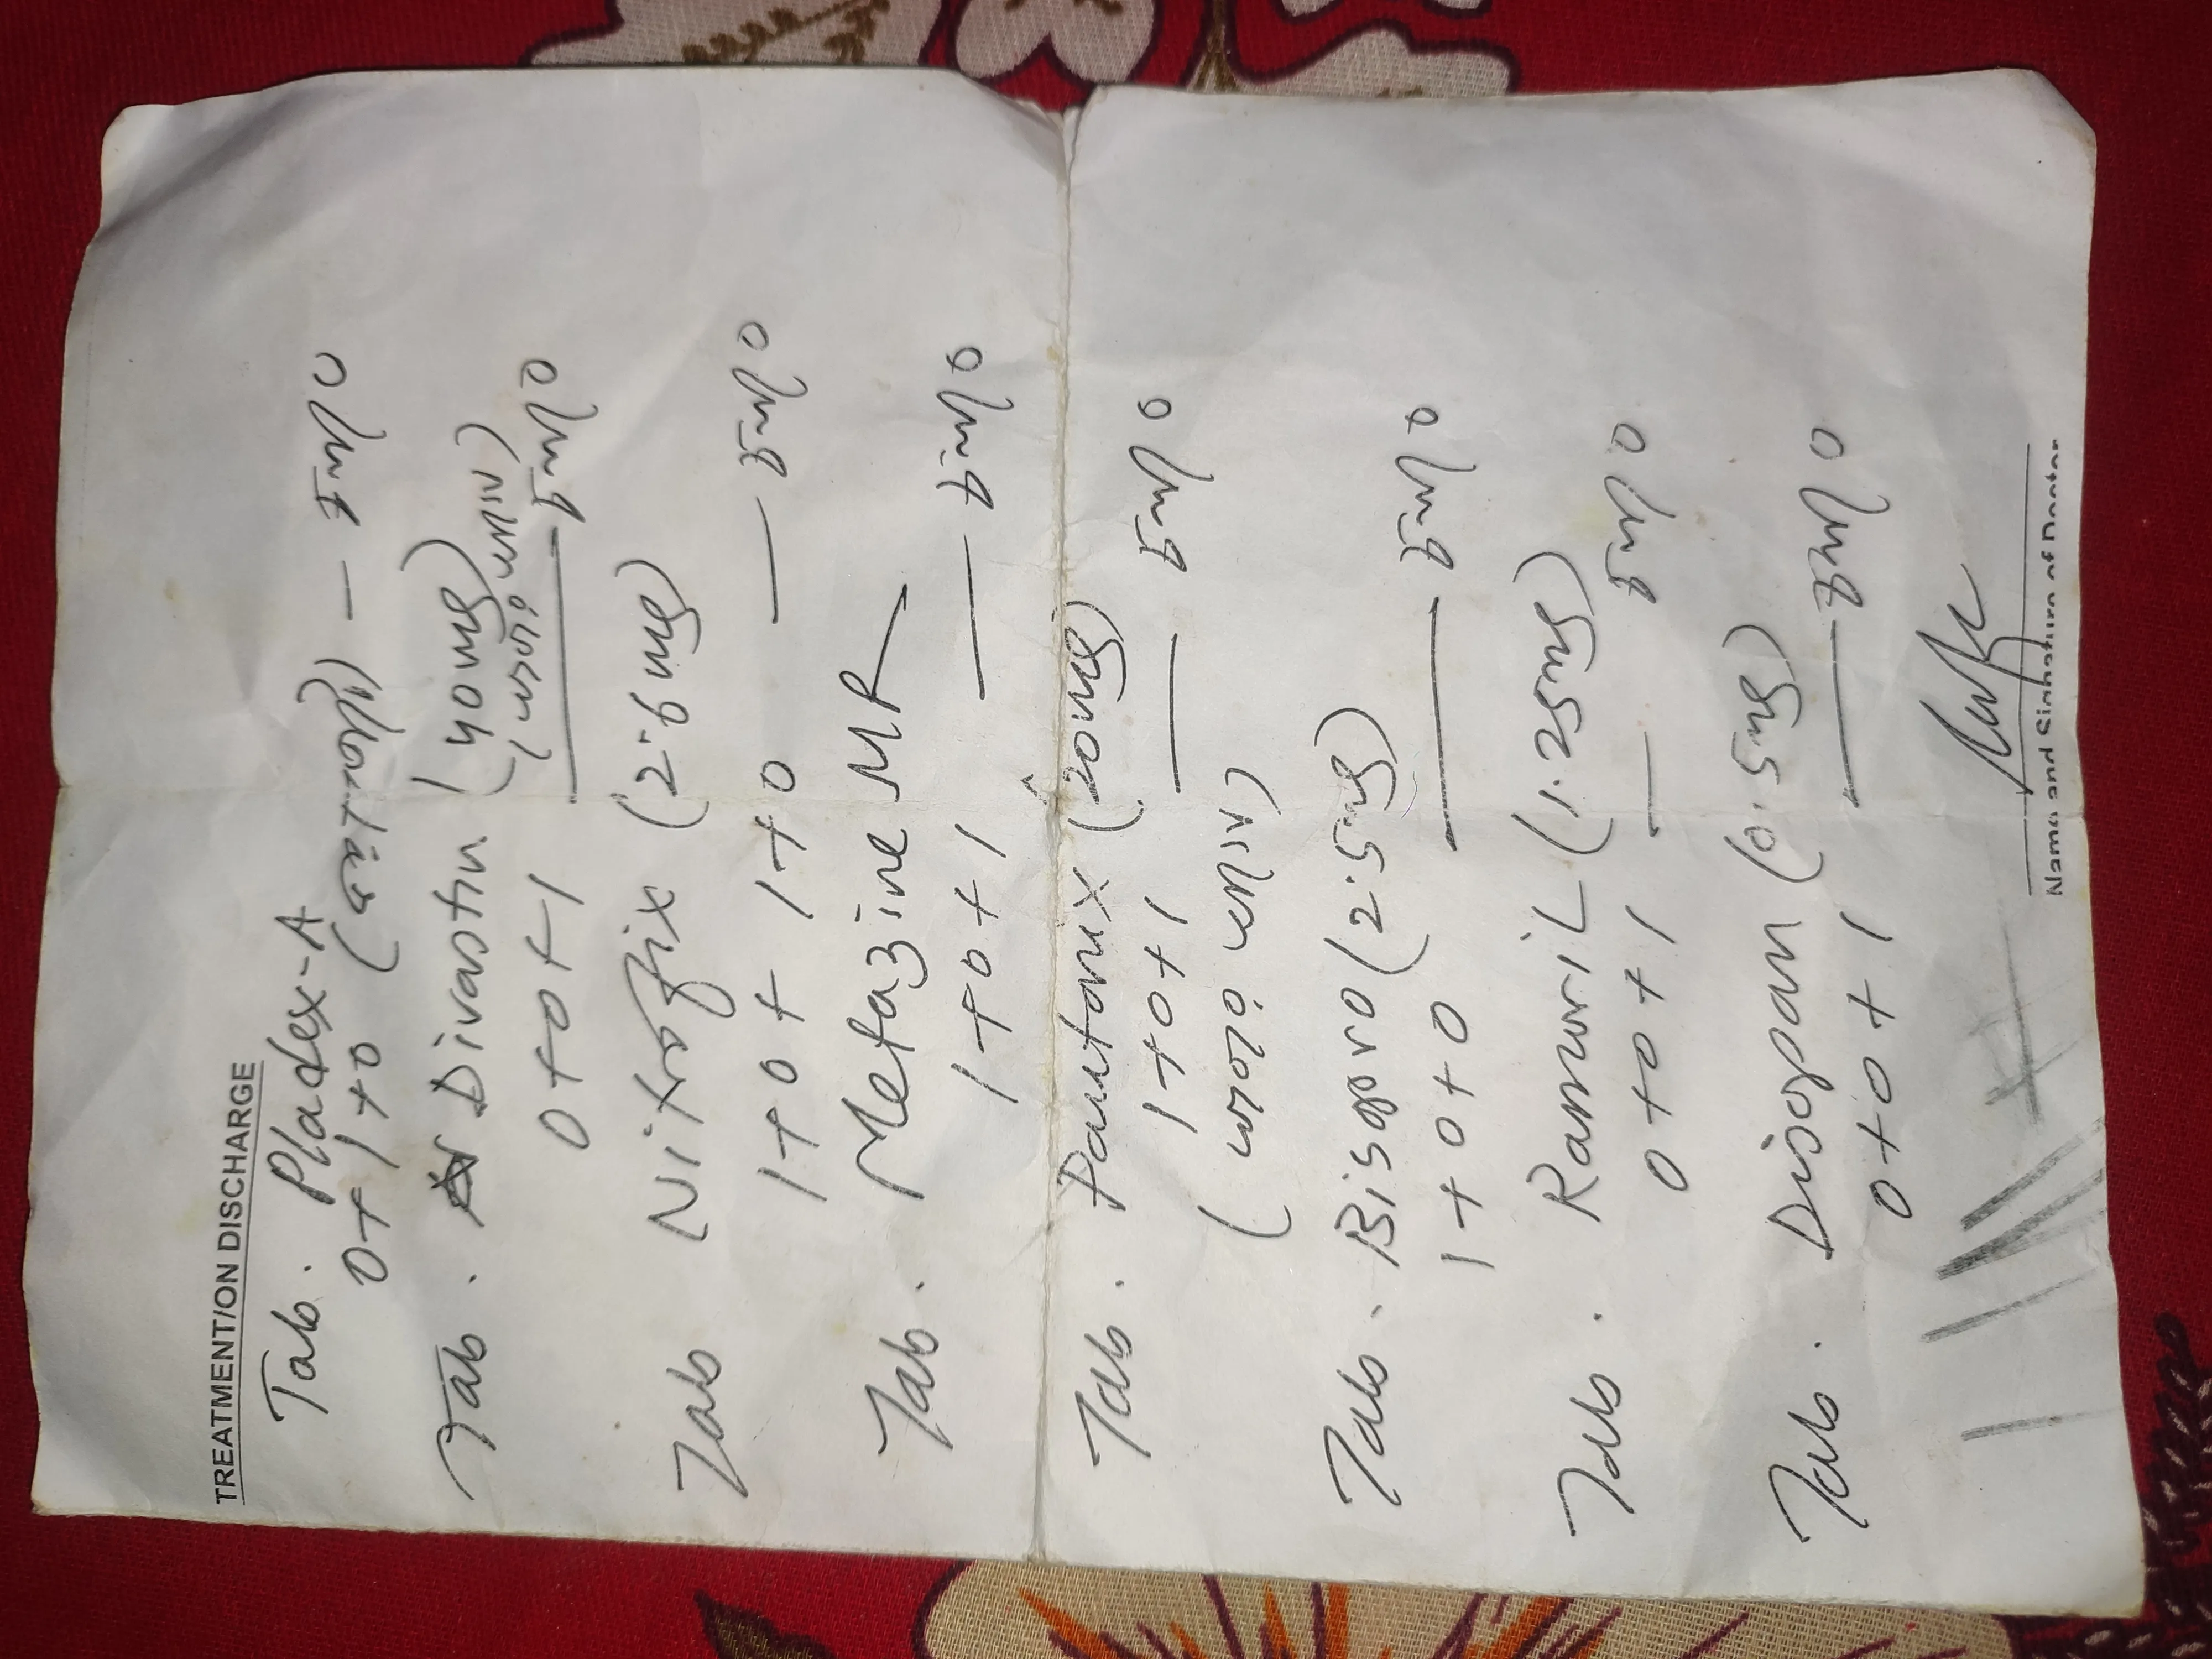 TREATMENT/ON DISCHARGE
Tab. Pladex-A
0+1+0 (ভরাপেটে) —
Tab. Divastin (40mg)
0+0+1
Tab Nitrofix (2.6mg)
1+0+1+0 —
Tab. Metazine MR
1+0+1 —
Tab. Pantonix (20mg)
1+0+1 —
(খাবার আগে)
Tab. Bisopro (2.5mg)
1+0+0 —
Tab. Ramoril (1.25mg)
0+0+1 —
Tab. Disopan (0.5mg)
0+0+1 —
Name and Signature of Doctor